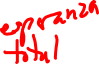 esperanza
total